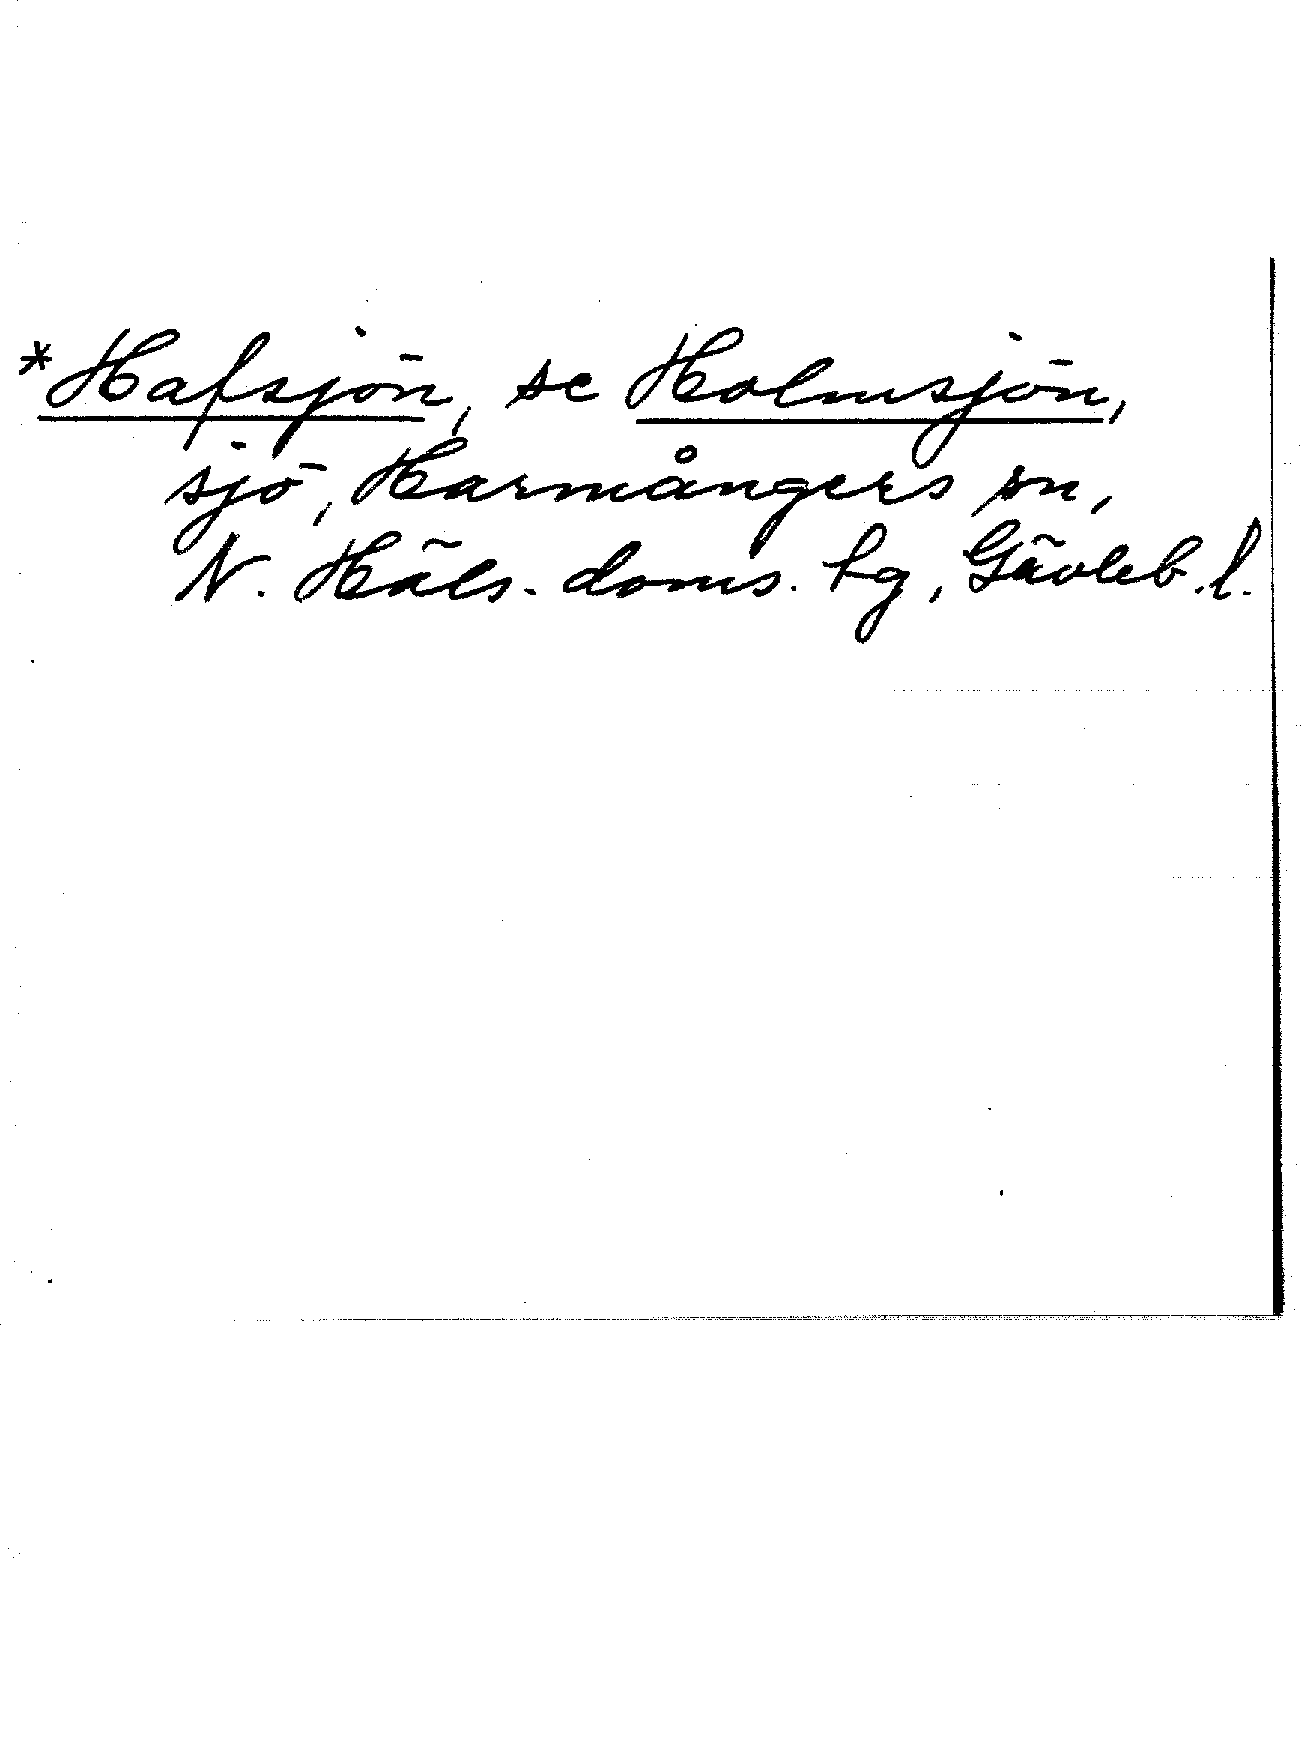 *Hafsjön, se Holmsjön,
sjö, Harmångers sn,
N. Häls. doms. hg, Gävleb. l.